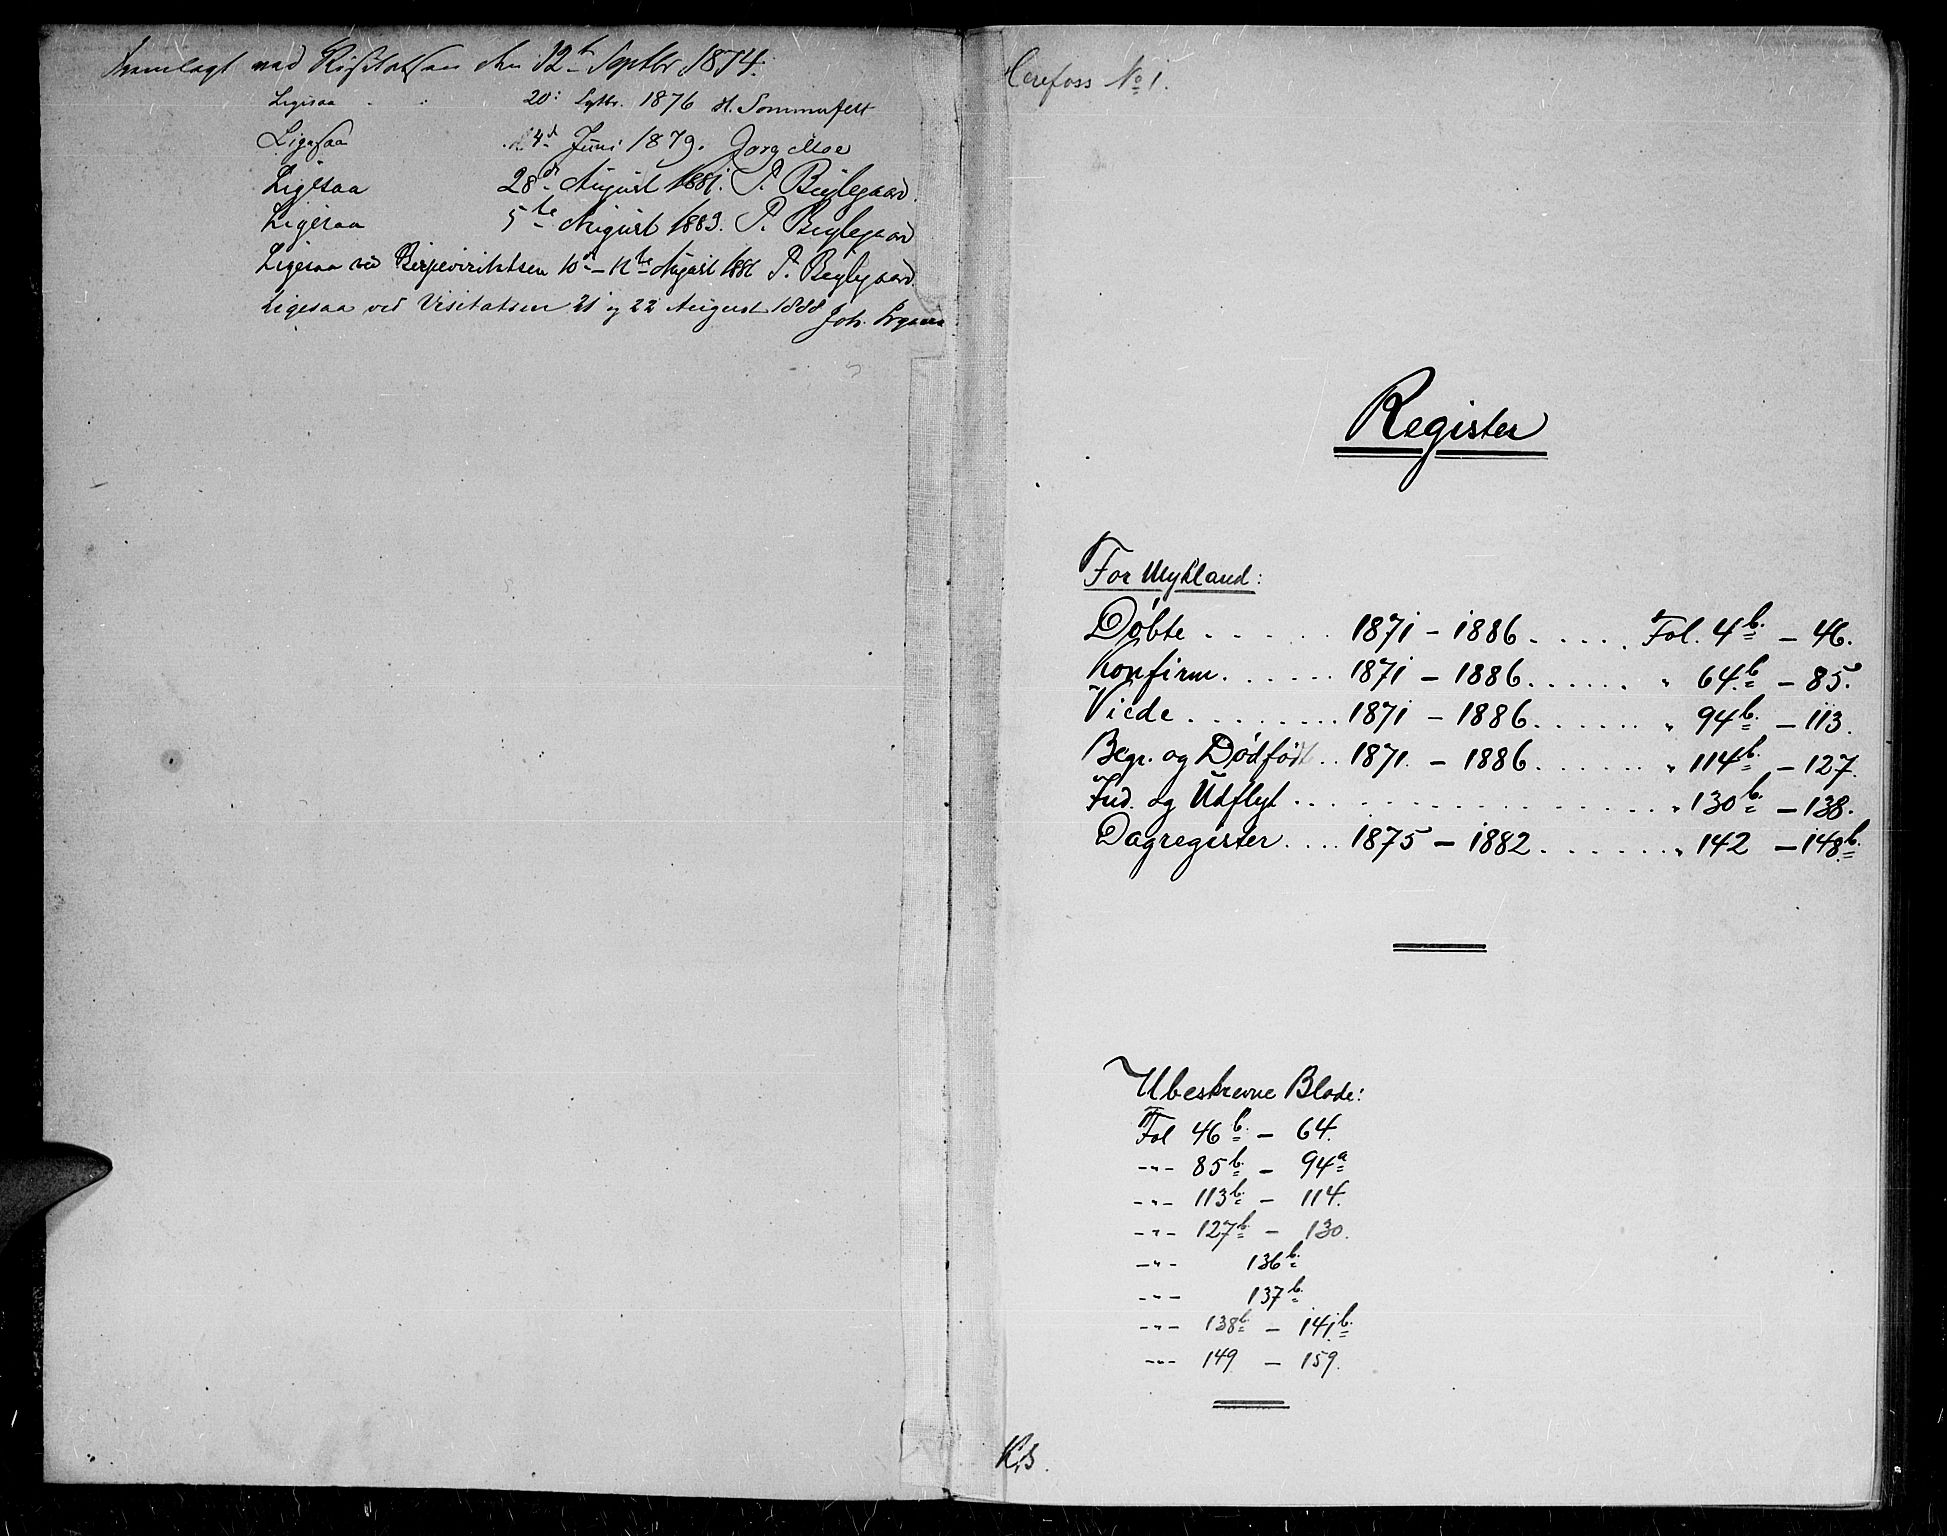 Fremlagt ved Visitatsen den 12te Septbr 1874.
Ligesaa 20: Septbr. 1876 H. Sommerfelt
Ligesaa d 4de Juni 1879. Jørg Moe
Ligesaa 28de August 1881. P. Bøylegaard.
Ligesaa 5te August 1883. P. Bøylegaard
Ligesaa ved Bispevisitatsen 10de–11te August 1886 P. Bøylegaard
Ligesaa ved Visitatsen 21 og 22 August 1888 Joh.
Herefoss No 1.
Register
For Mykland:
Døbte . . . . . . 1871 – 1886 . . . . . Fol. 4b. – 46.
Konfirm. . . . . . . 1871 – 1886. . . . . . . " 64b. – 85.
Viede . . . . . . . . . 1871 – 1886. . . . . . . " 94b. – 113.
Begr. og Dødfødt . . 1871. – 1886. . . . . . . " 114b. – 127.
Ind. og Udflyt . . . . . . . . . . . . . . . . . " 130b. – 138.
Dagregister. . . . 1875 – 1882 . . . . . . . " 142 – 148b.
Ubeskrevne Blade:
Fol 46b. – 64.
-"- 85b. – 94a
-"- 113b. – 114.
-"- 127b. – 130.
-"- 136b.
-"- 137b.
-"- 138b. – 141b.
-"- 149 – 159.
K.S.